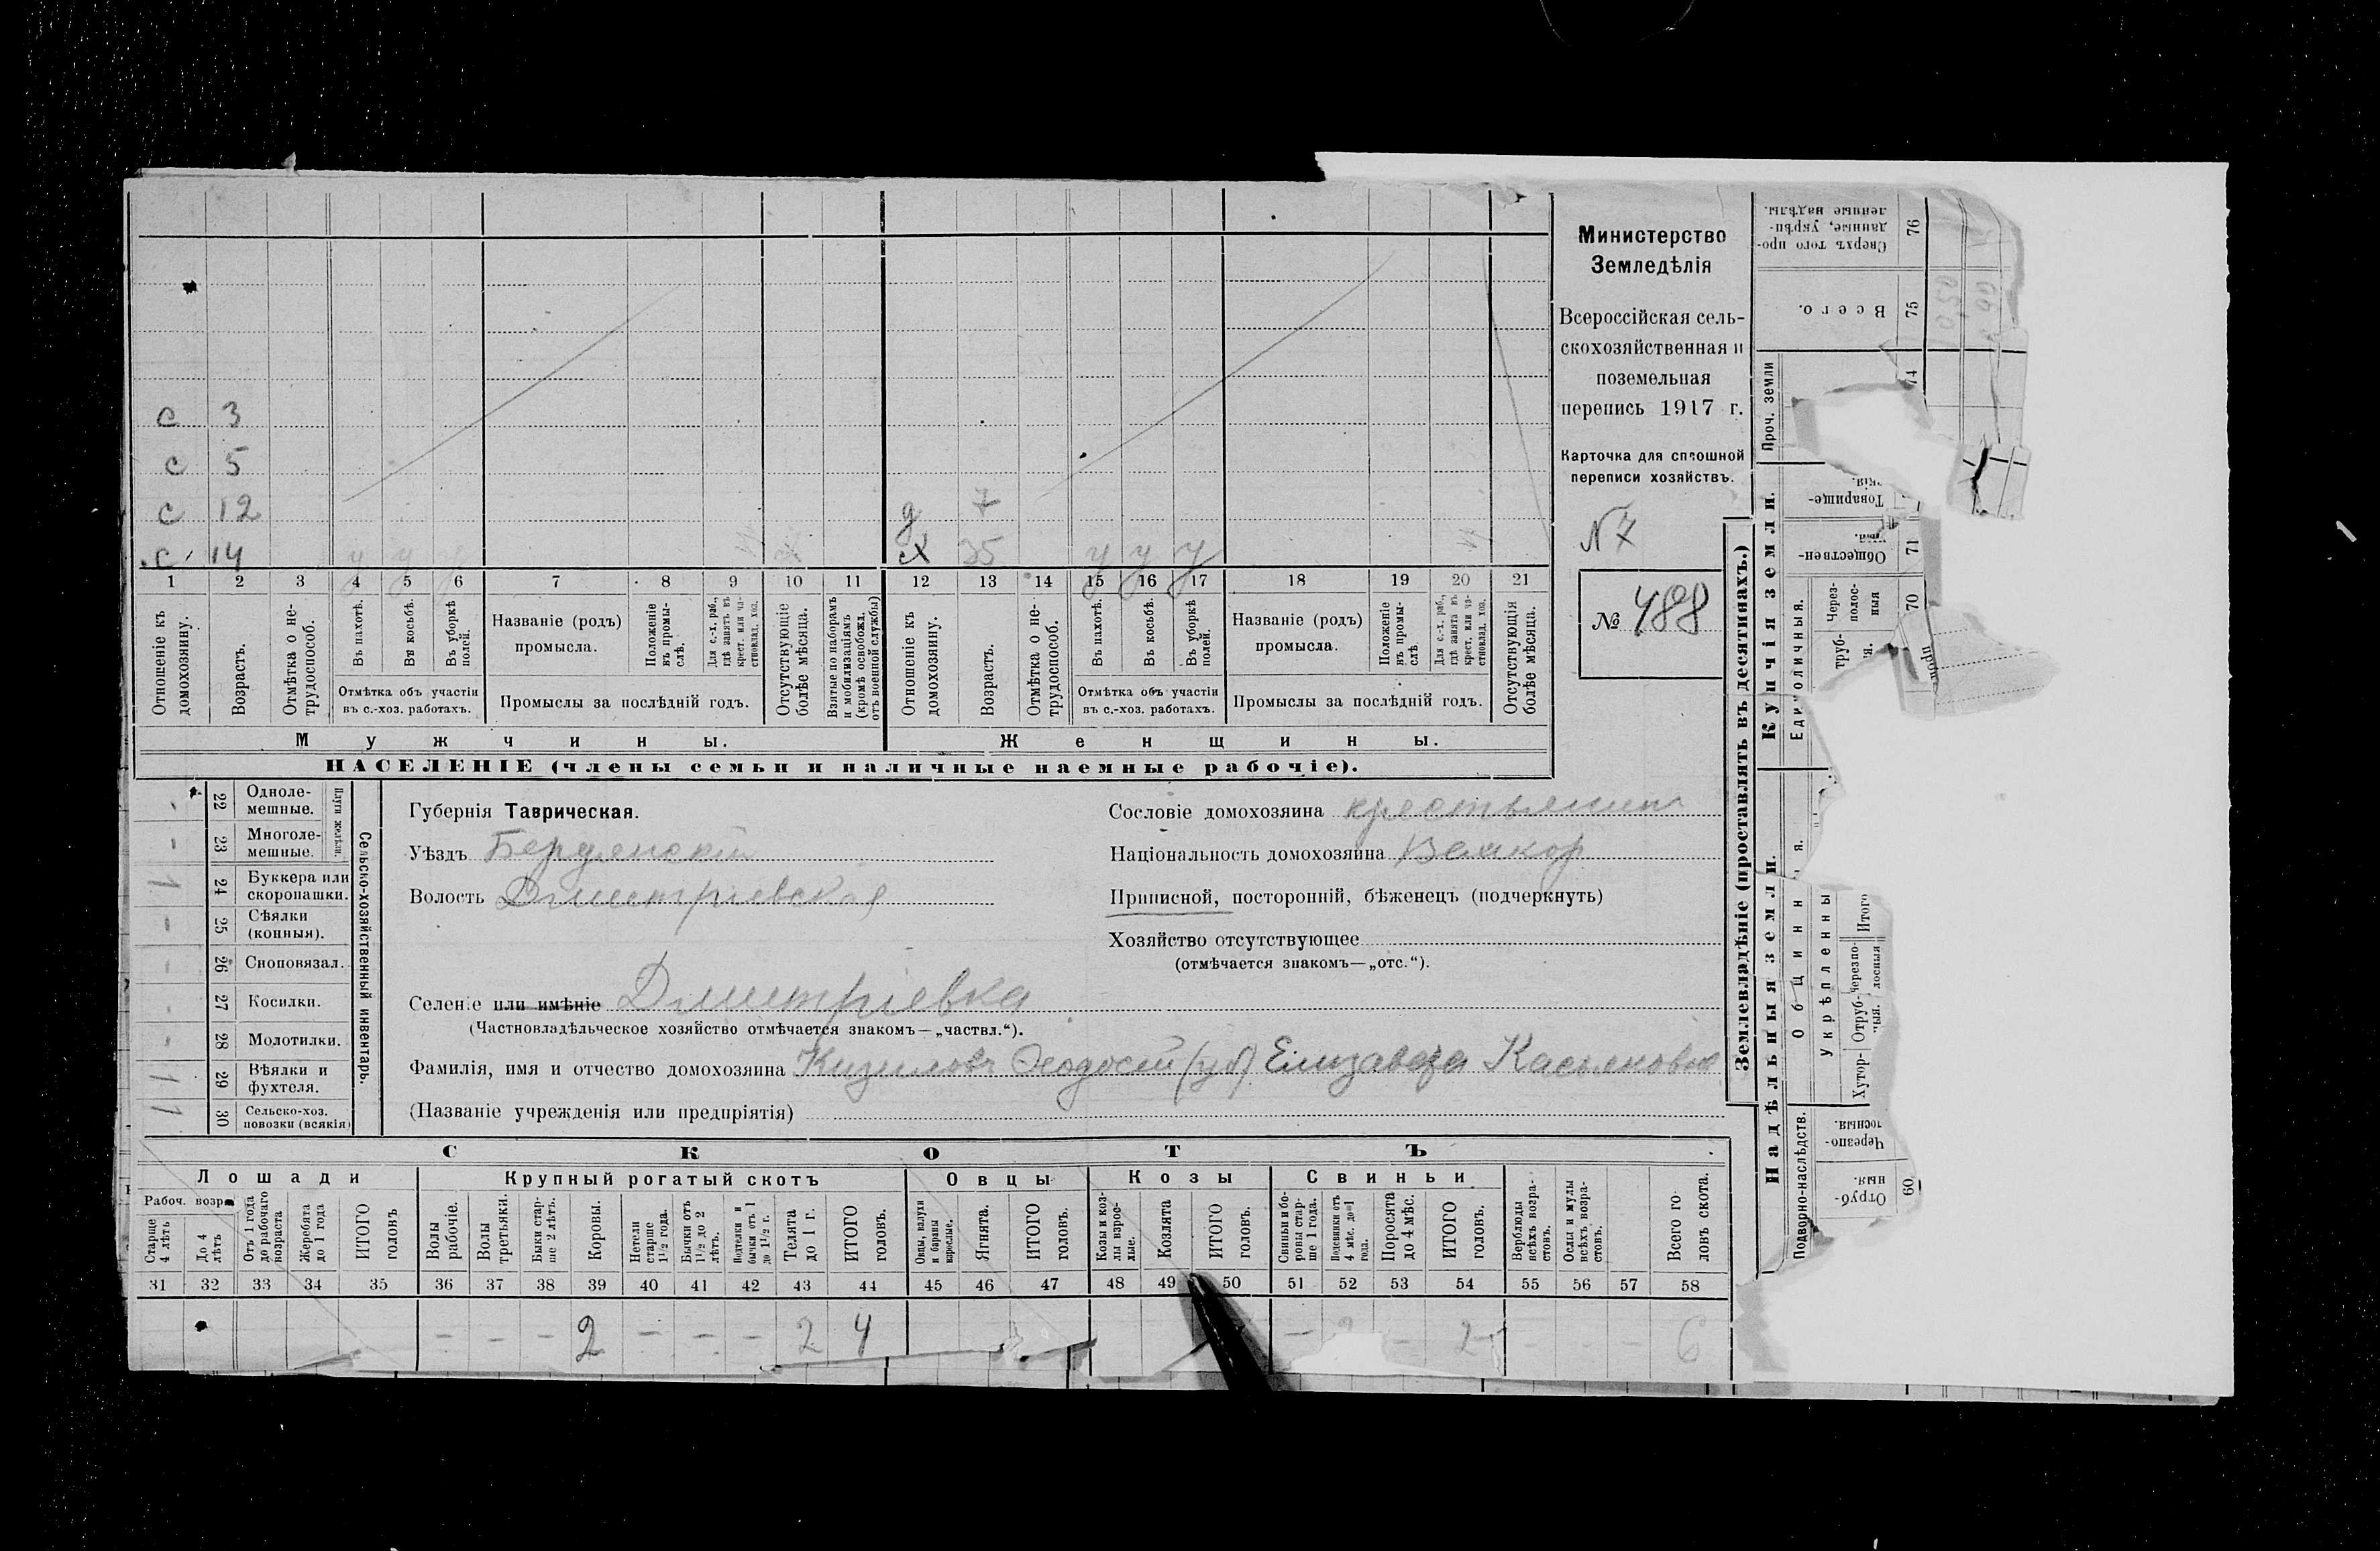 с 3
с 5
с 12
с 14 у у у
д 7
х 35 у у у
1 2 3 4 5 6 7 8 9 10 11 12 13 14 15 16 17 18 19 20 21
Отношеніе къ домохозяину.
Возрастъ.
Отмѣтка о нетрудоспособ.
Въ пахотѣ.
Въ косьбѣ.
Въ уборкѣ полей.
Отмѣтка объ участіи
въ с.-хоз. работахъ.
Названіе (родъ)
промысла.
Положеніе въ промыслѣ.
Для с.-х. раб., гдѣ занятъ въ крест. или частновлад. хоз.
Промыслы за послѣдній годъ.
Отсутствующіе болѣе мѣсяца.
Взятые по наборамъ и мобилизаціямъ (кромѣ освобожд. отъ военной службы)
Отношеніе къ домохозяину.
Возрастъ.
Отмѣтка о нетрудоспособ.
Въ пахотѣ.
Въ косьбѣ.
Въ уборкѣ полей.
Отмѣтка объ участіи
въ с.-хоз. работахъ.
Названіе (родъ)
промысла.
Положеніе въ промыслѣ
Для с.-х. раб., гдѣ занята въ крест. или частновлад. хоз.
Промыслы за послѣдній годъ.
Отсутствующія болѣе мѣсяца.
Мужчины.
Женщины.
НАСЕЛЕНІЕ (члены семьи и наличные наемные рабочіе).
Министерство
Земледѣлія
Всероссійская сель-
скохозяйственная и
поземельная
перепись 1917 г.
Карточка для сплошной
переписи хозяйствъ.
N 7
№ 488
- 22 Одноле-
мешные.
- 23 Многоле-
мешные.
Плуги желѣзн.
1 24 Буккера или
скоропашки.
- 25 Сѣялки
(конныя).
- 26 Сноповязал.
- 27 Косилки.
- 28 Молотилки.
1 29 Вѣялки и
фухтеля.
1 30 Сельско-хоз.
повозки (всякія)
Сельско-хозяйственный инвентарь.
Губернія Таврическая.
Уѣздъ Бердянскій
Волость Дмитріевская
Селеніе или имѣніе Дмитріевка
(Частновладѣльческое хозяйство отмѣчается знакомъ—„частвл.“).
Фамилія, имя и отчество домохозяина Кизиловъ Ѳеодосій (уб) Елизавета Касьяновна
(Названіе учрежденія или предпріятія)
Сословіе домохозяина крестьянинъ
Національность домохозяина Великор
Приписной, посторонній, бѣженецъ (подчеркнуть)
Хозяйство отсутствующее
(отмѣчается знакомъ—„отс.“).
СКОТЪ
Лошади
Крупный рогатый скотъ
Овцы
Козы
Свиньи
Рабоч. возр
Старше 4 лѣтъ
До 4 лѣтъ
Отъ 1 года до рабочаго возраста
Жеребята до 1 года
ИТОГО головъ
Волы рабочіе.
Волы третьяки.
Быки старше 2 лѣтъ.
Коровы.
Нетели старше 1½ года.
Бычки отъ 1½ до 2 лѣтъ.
Подтелки и бычки отъ 1 до 1½ г.
Телята до 1 г.
ИТОГО головъ.
Овцы, валухи и бараны взрослые.
Ягнята.
ИТОГО головъ.
Козы и козлы взрослые.
Козлята
ИТОГО головъ.
Свиньи и боровы старше 1 года.
Подсвинки отъ 4 мѣс. до 1 года.
Поросята до 4 мѣс.
ИТОГО головъ.
Верблюды всѣхъ возрастовъ.
Ослы и мулы всѣхъ возрастовъ.
Всего головъ скота.
31 32 33 34 35 36 37 38 39 40 41 42 43 44 45 46 47 48 49 50 51 52 53 54 55 56 57 58
- - - 2 - - - 2 4 - 2 - 2 - - - 6
Землевладѣніе (проставлять въ десятинахъ.)
Надѣльныя земли.
Купчія земли.
Проч. земли
Подворно-наслѣдств.
Отруб-
ныя.
60
Черезпо-
лосныя.
Укрѣпленны
Хутор-
Отруб-
ныя.
Черезпо-
лосныя
Итого
Единоличныя.
труб-
Через-
полос-
ныя
70
Обществен-
71
Товарище-
скія.
74
Всего.
75
Сверхъ того про-
данные, укрѣп-
ленные надѣлы.
76